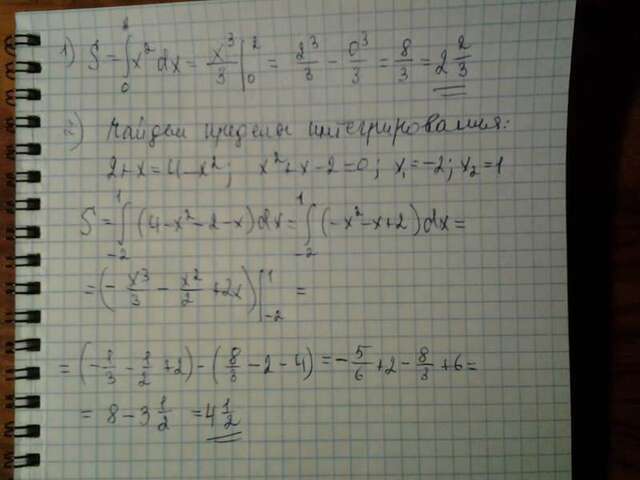 1) S = ∫₀² x² dx = x³/3 |₀² = 2³/3 − 0³/3 = 8/3 = 2 2/3
2) Найдем пределы интегрирования:
2+x=4−x²; x²+x−2=0; x₁=−2; x₂=1
S = ∫₋₂¹ (4−x²−2−x)dx = ∫₋₂¹ (−x²−x+2)dx =
= (−x³/3 − x²/2 + 2x) |₋₂¹ =
= (−1/3 − 1/2 + 2) − (8/3 − 2 − 4) = −5/6 + 2 − 8/3 + 6 =
= 8 − 3 1/2 = 4 1/2